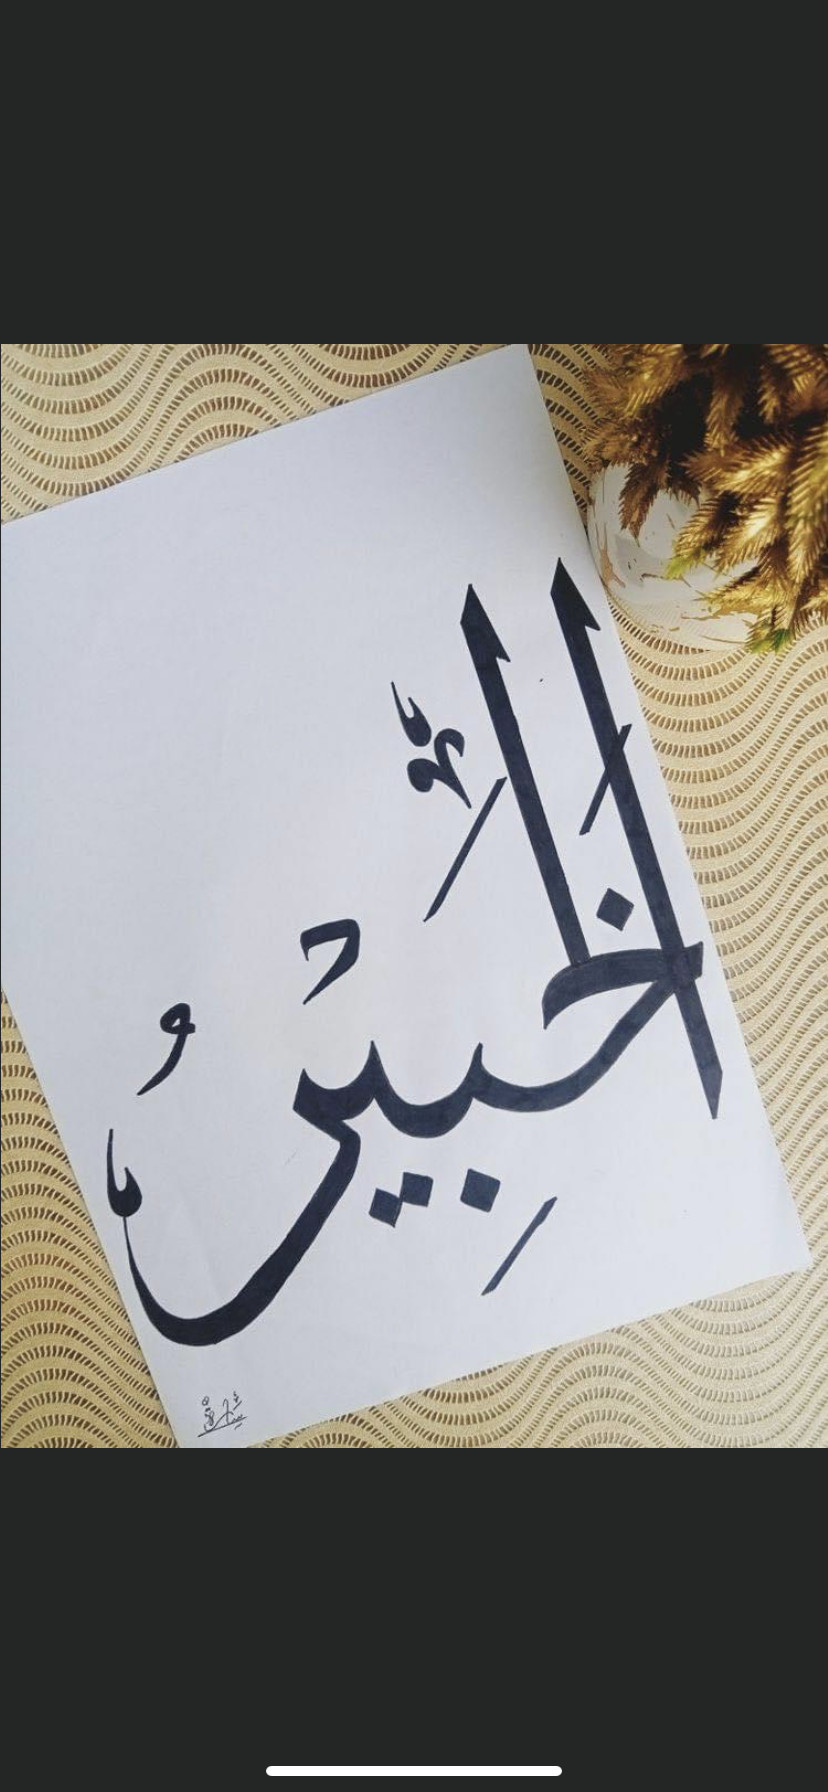 الْخَبِيْرُ